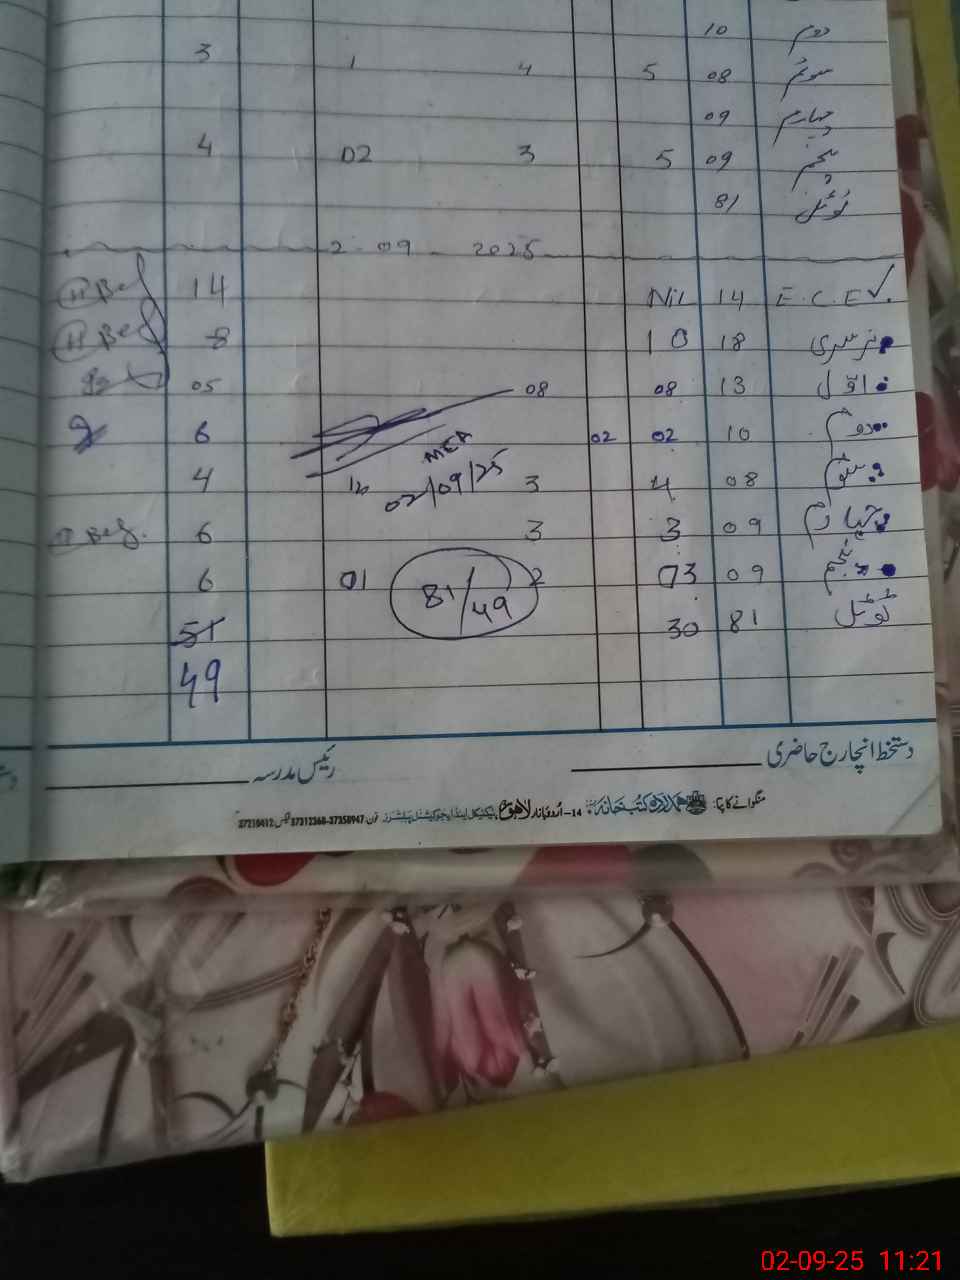 دوم 10
سوئم 08 5 4 1 3
چہارم 09
پنجم 09 5 3 02 4
ٹوٹل 81
2-09-2025
E.C.E 14 Nil 14
نرسری 18 10 8
اول 13 08 08 05
دوم 10 02 02 6
سوئم 08 4 3 4
MEA
02/09/25
چہارم 09 3 3 6
پنجم 09 03 2 01 6
81/49
ٹوٹل 81 30 51
49
دستخط انچارج حاضری رئیس مدرسہ
منگوانے کا پتہ: ہمدرد کتب خانہ 14-اُردو بازار لاہور ٹیکنیکل اینڈ ایجوکیشنل پبلشرز فون: 37312368-37358947 فیکس: 37210412
02-09-25 11:21